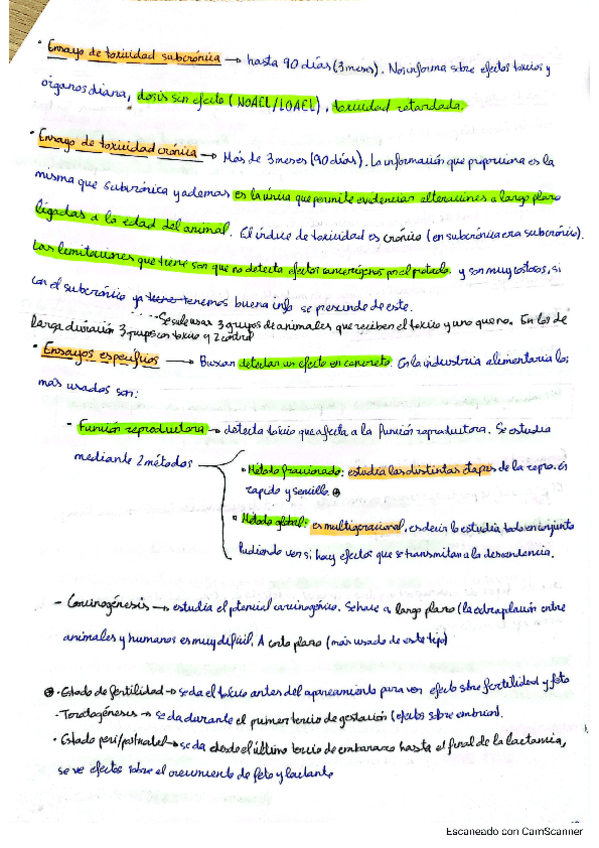 · Ensayo de toxicidad subcrónica → hasta 90 días (3 meses). Nos informa sobre efectos tóxicos y
órganos diana, dosis sin efecto (NOAEL/LOAEL), toxicidad retardada.
· Ensayo de toxicidad crónica → Más de 3 meses (90 días). La información que proporciona es la
misma que subcrónica y ademas es la única que permite evidenciar alteraciones a largo plazo
ligadas a la edad del animal. El índice de toxicidad es crónico (en subcrónica era subcrónico).
Las limitaciones que tiene son que no detecta efectos cancerígenos por el probado. y son muy costosos, si
con el subcrónico ya tiene tenemos buena info se prescinde de este.
Se suele usar 3 grupos de animales que reciben el tóxico y uno que no. En los de
larga duración 3 grupos con tóxico y 2 control
· Ensayos específicos → Buscan detectar un efecto en concreto. En la industria alimentaria los
más usados son:
· Función reproductora → detecta tóxico que afecta a la función reproductora. Se estudia
mediante 2 métodos
· Método fraccionado: estudia las distintas etapas de la repro. es
rapido y sencillo.
· Método global: es multigeracional, es decir lo estudia todo en conjunto
Pudiendo ver si hay efectos que se transmitan a la descendencia.
- Carcinogénesis → estudia el potencial carcinogénico. Se hace a largo plazo (la extrapolación entre
animales y humanos es muy difícil. A corto plazo (más usado de este tipo)
· Estado de fertilidad → se da el tóxico antes del apareamiento para ver efecto sobre fertilidad y feto
- Teratogénesis → se da durante el primer tercio de gestación (efectos sobre embrion).
· Estado peri/postnatal → se da desde el último tercio de embarazo hasta el final de la lactancia,
se ve efectos sobre el crecimiento de feto y lactante
Escaneado con CamScanner